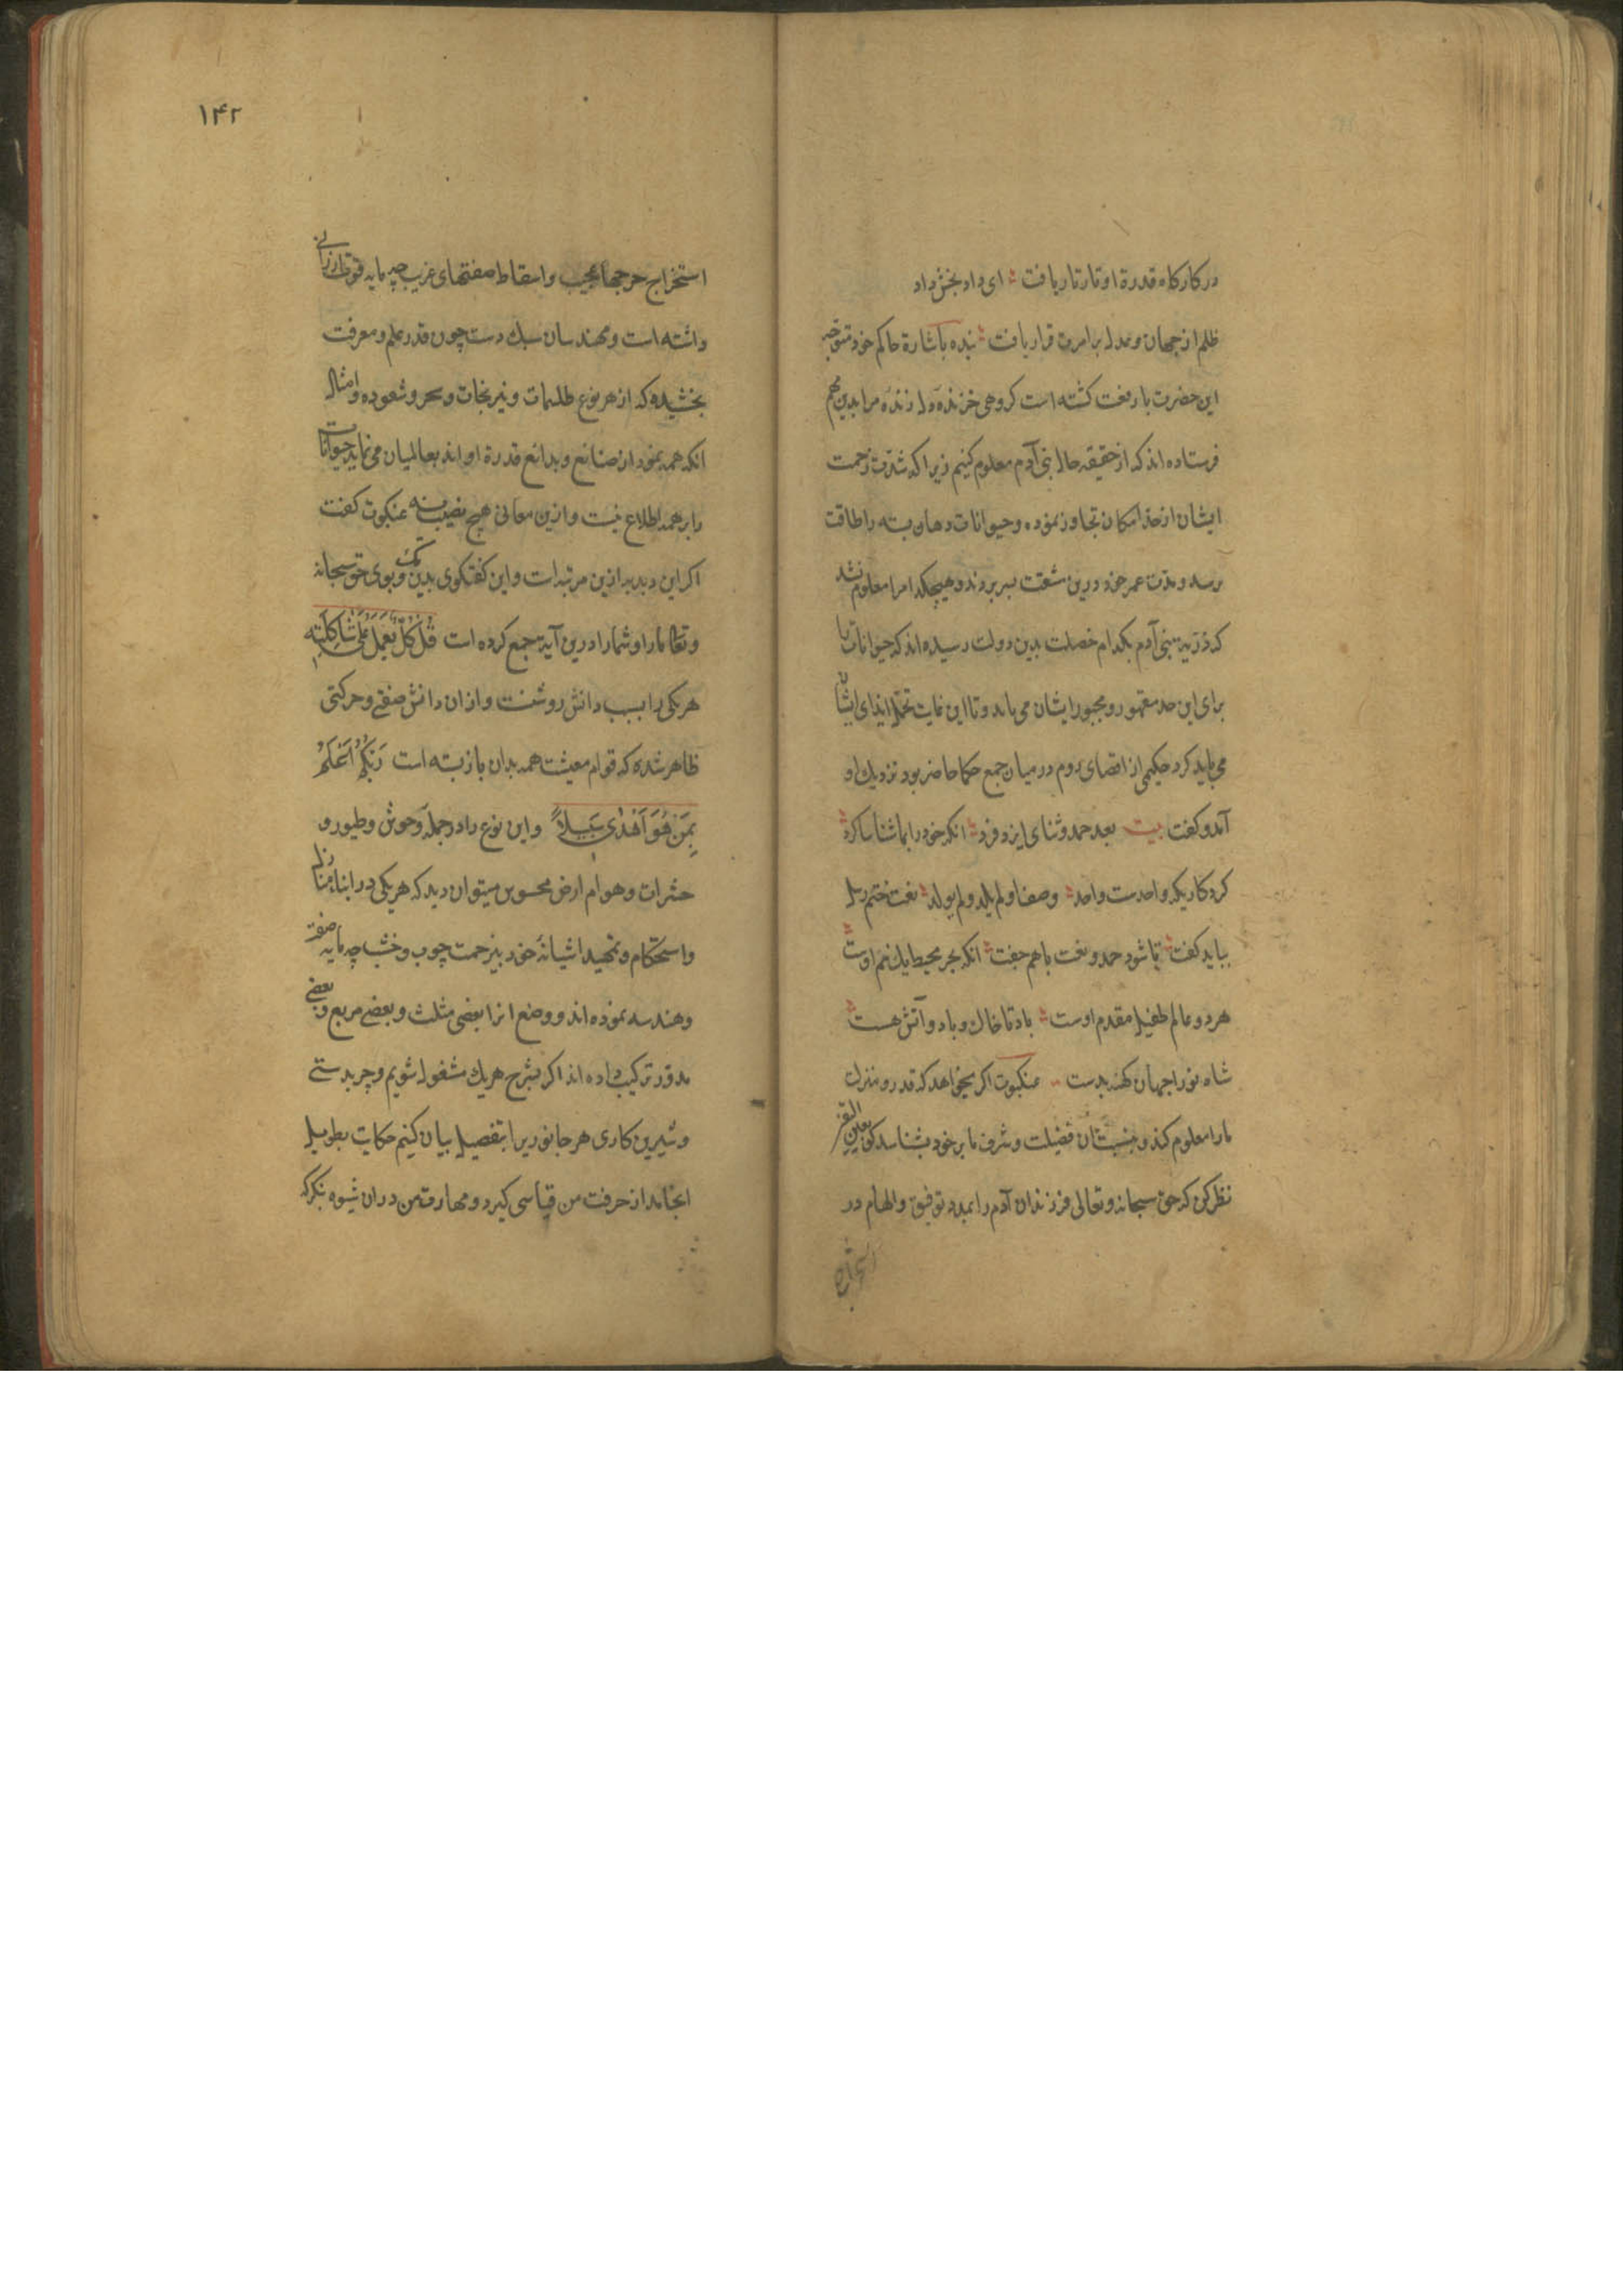 در کارکاه قدرة او تارتار بافت ؞ ای داد بخش داد
ظلم از جهان و عدل بر امرت قرار یافت ؞ بنده باشارة حاکم خود متوجه
این حضرت با رفعت کشته است کروهی خزنده و لرزنده مرا بدین مهم
فرستاده اند که از حقیقه حال بنی آدم معلوم کنیم زیرا که شدت زحمت
ایشان از حد امکان تجاوز نموده و حیوانات دهان بسته را طاقت
برسد و مدت عمر خود درین مشقت بسر بردند و هیچکدامرا معلوم نشد
که ذریة بنی آدم بکدام خصلت بدین دولت رسیده اند که حیوانات را
برای این حد مقهور و مجبور ایشان می باید و تا این غایت تحمل ایذای ایشان
می باید کرد حکیمی از اقصای روم در میان جمع حکما حاضر بود نزدیک او
آمد و کفت بیت بعد حمد و ثنای ایزد فرد ؞ انکه خود را بما شناسا کرد ؞
کردکاریکه واحدست و احد ؞ وصف او لم یلد و لم یولد ؞ نعت ختم رسل
بباید کفت ؞ تا شود حمد و نعت با هم جفت ؞ انکه بحر محیط یک نم اوست ؞
هر دو عالم طفیل مقدم اوست ؞ باد تا خاک و باد و آتش هست ؞
شاه نو را جهان کهنه بدست عنکبوت اکر میخواهد که قدر و منزلت
ما را معلوم کند و بنسبت شان فضیلت و شرف ما بر خود بشناسد کو بعین
نظر کن که حق سبحانه و تعالی فرزندان آدم را بمدد توفیق و الهام در
استخراج
۱۴۲
استخراج حرجها عجیب و اسقاط صفتهای غریب چه مایه قوت ارزانی
داشته است و مهندسان سبک دست چون قدر علم و معرفت
بخشیده که از هر نوع طلسمات و نیرنجات و سحر و شعوده و امثال
انکه همه نمودار صنایع و بدائع قدرة او اند بعالمیان می نماید حیوانات
را بر همه اطلاع نیست و ازین معانی هیچ نصیب نه عنکبوت کفت
اکر این دبدبه ازین مرتبه است و این کفتکوی بدین رنک و بوی حق سبحانه
و تعالی ما را و شما را درین آیة جمع کرده است قُلْ کُلٌّ یَعْمَلُ عَلَی شَاکِلَتِهِ
هر یکی را بسبب دانش روشنست و از ان دانش صفتی و حرکتی
ظاهر شده که قوام معیشت همه بدان باز بسته است رَبُّکُمْ اَعْلَمُ
بِمَنْ هُوَ اَهْدٰی سَبِیلاً و این نوع را در جمله وحوش و طیور و
حشرات و هوام ارض محسوس میتوان دید که هر یکی در ابنا منازل
و استحکام و تمهید اشیانهٔ خود بیزحمت چوب و خشت چه مایه صفت
و هندسه نموده اند و وضع انرا بعضی مثلث و بعضی مربع و بعضی
مدور ترکیب داده اند اکر بشرح هر یک مشغول شویم و چربدستی
و شیرین کاری هر جانوریرا بتفصیل بیان کنیم حکایت بطویل
انجامد از حرفت من قیاسی کیرد و مهارة من دران شیوه بنکر که